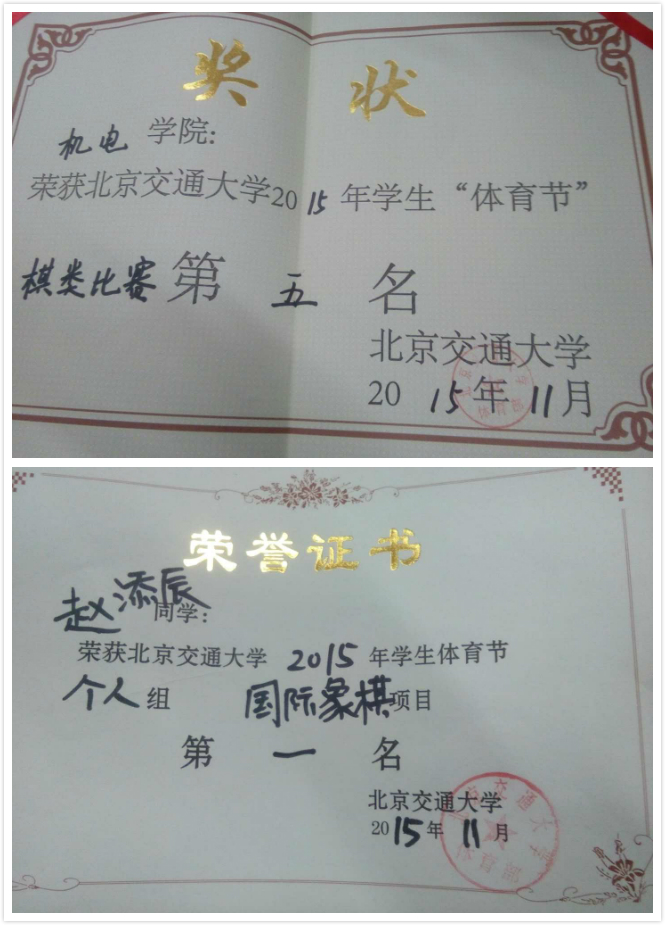 奖状
机电 学院:
荣获北京交通大学2015年学生“体育节”
棋类比赛 第 五 名
北京交通大学
2015年11月
荣誉证书
赵添辰 同学:
荣获北京交通大学 2015 年学生体育节
个人 组 国际象棋 项目
第 一 名
北京交通大学
2015年11月
北京交通大学
体育部